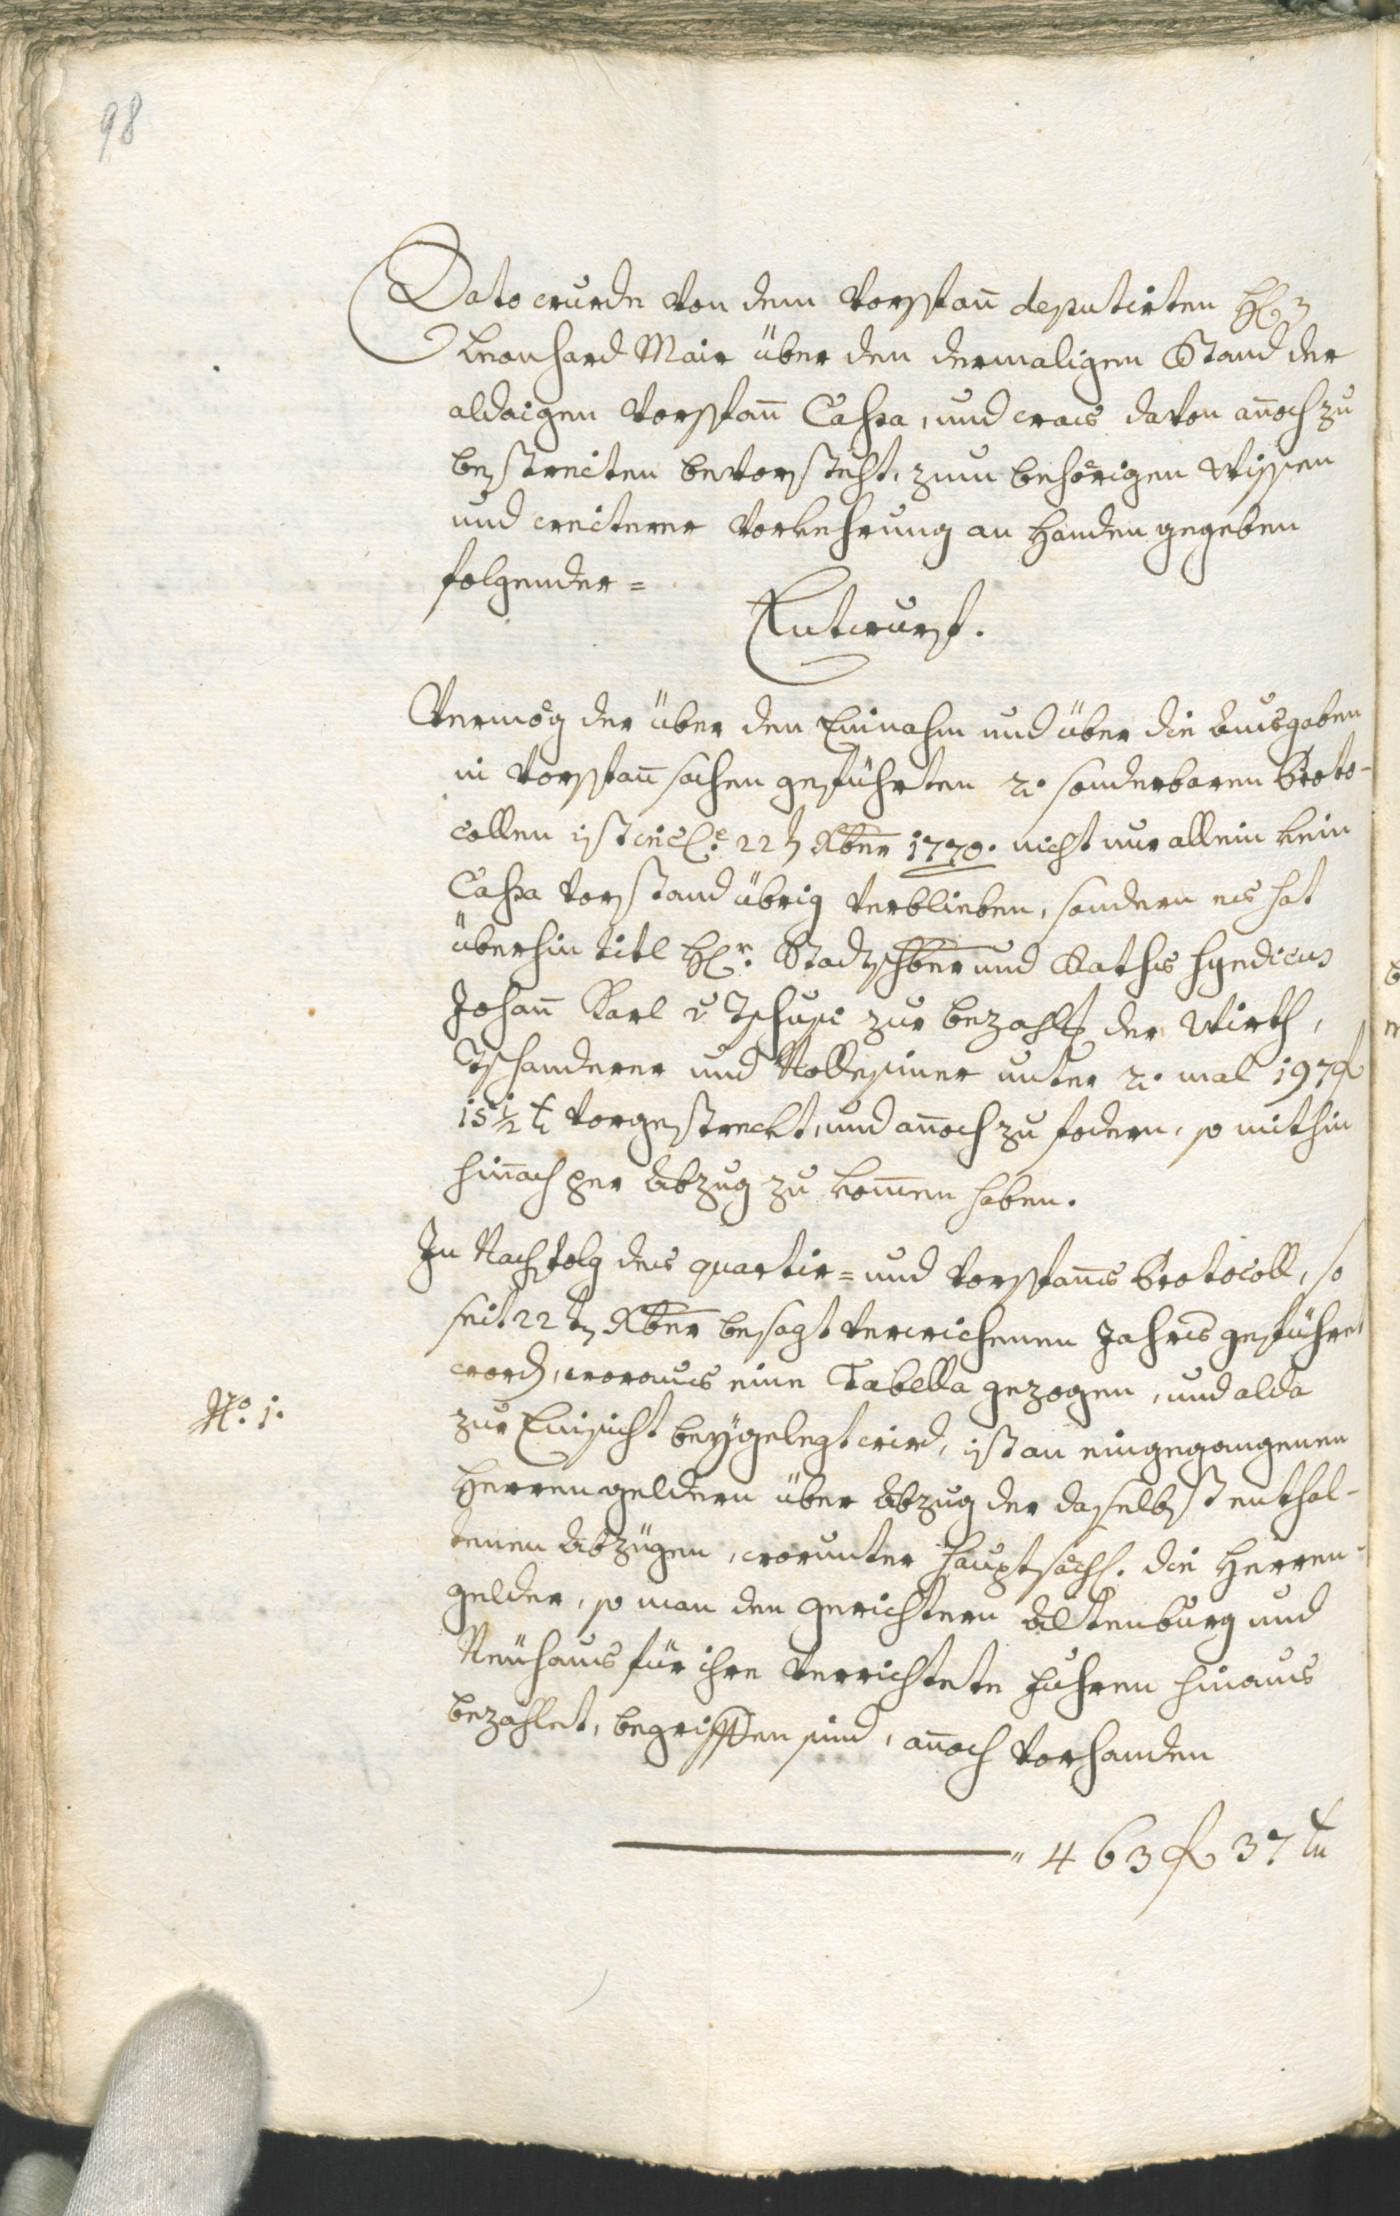 98
Dato wurde von dem Vorspañ deputirten H:
Leonhard Mair über den dermaligen Stand der
aldaigen Vorspañ Cassa, und was davon añoch zu
bestreiten bevorsteht, zum behörigen Wissen
und weiterer Vorkehrung an Handen gegeben
folgender=
Entwurf.
Vermög der über den Einnahm und über die Ausgaben
in Vorspañsachen geführten 2. sonderbaren Proto-
collen ist 22t Xber 1770. nicht nur allein kein
Cassa Vorstand übrig verblieben, sondern es hat
überhin titl Hr. Stadtschber und Raths Syndicus
Johañ Karl v Tschusi zur bezahlg der Wirth,
Tschanderer und unter 2. mal 197 f
15 1/2 x vorgestreckt, und añoch zu fodern, so mithin
hiñach per Abzug zu kom̃en haben.
In Nachfolg des quartir= und Vorspañs Protocoll, so
seit 22t Xber besagt verwichenen Jahrs geführet
word, woraus eine Tabella gezogen, und alda
No. 1.
zur Einsicht beygelegt wird, ist an eingegangenen
Herrengeldern über Abzug der daselbst enthal-
tenen Abzügen, worunter hauptsächl. die Herren-
gelder, so man den Gerichtern Altenburg und
Neuhaus für ihre verrichtete Fuhren hinaus
bezahlet, begriffen sind, añoch vorhanden
" 463 f 37 x